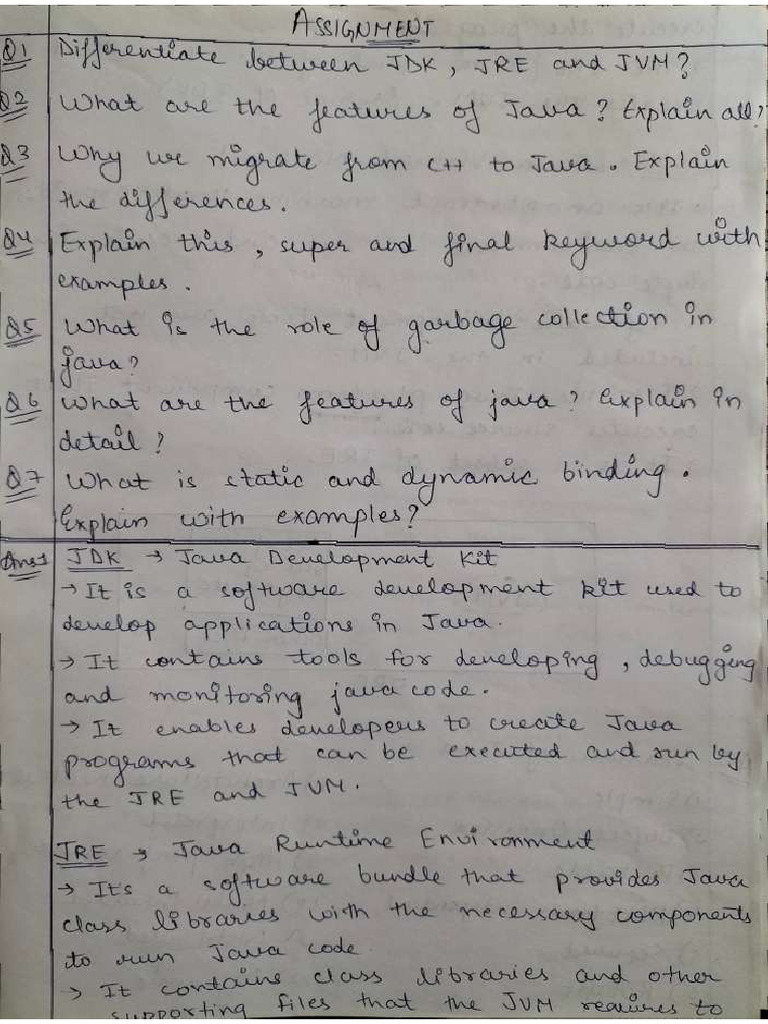 ASSIGNMENT
Q1 Differentiate between JDK, JRE and JVM?
Q2 What are the features of Java? Explain all?
Q3 Why we migrate from C++ to Java. Explain
the differences.
Q4 Explain this, super and final keyword with
examples.
Q5 What is the role of garbage collection in
java?
Q6 What are the features of java? Explain in
detail?
Q7 What is static and dynamic binding.
Explain with examples?
Ans1 JDK → Java Development Kit
→ It is a software development kit used to
develop applications in Java.
→ It contains tools for developing, debugging
and monitoring java code.
→ It enables developers to create Java
programs that can be executed and run by
the JRE and JVM.
JRE → Java Runtime Environment
→ It's a software bundle that provides Java
class libraries with the necessary components
to run Java code.
→ It contains class libraries and other
supporting files that the JVM requires to